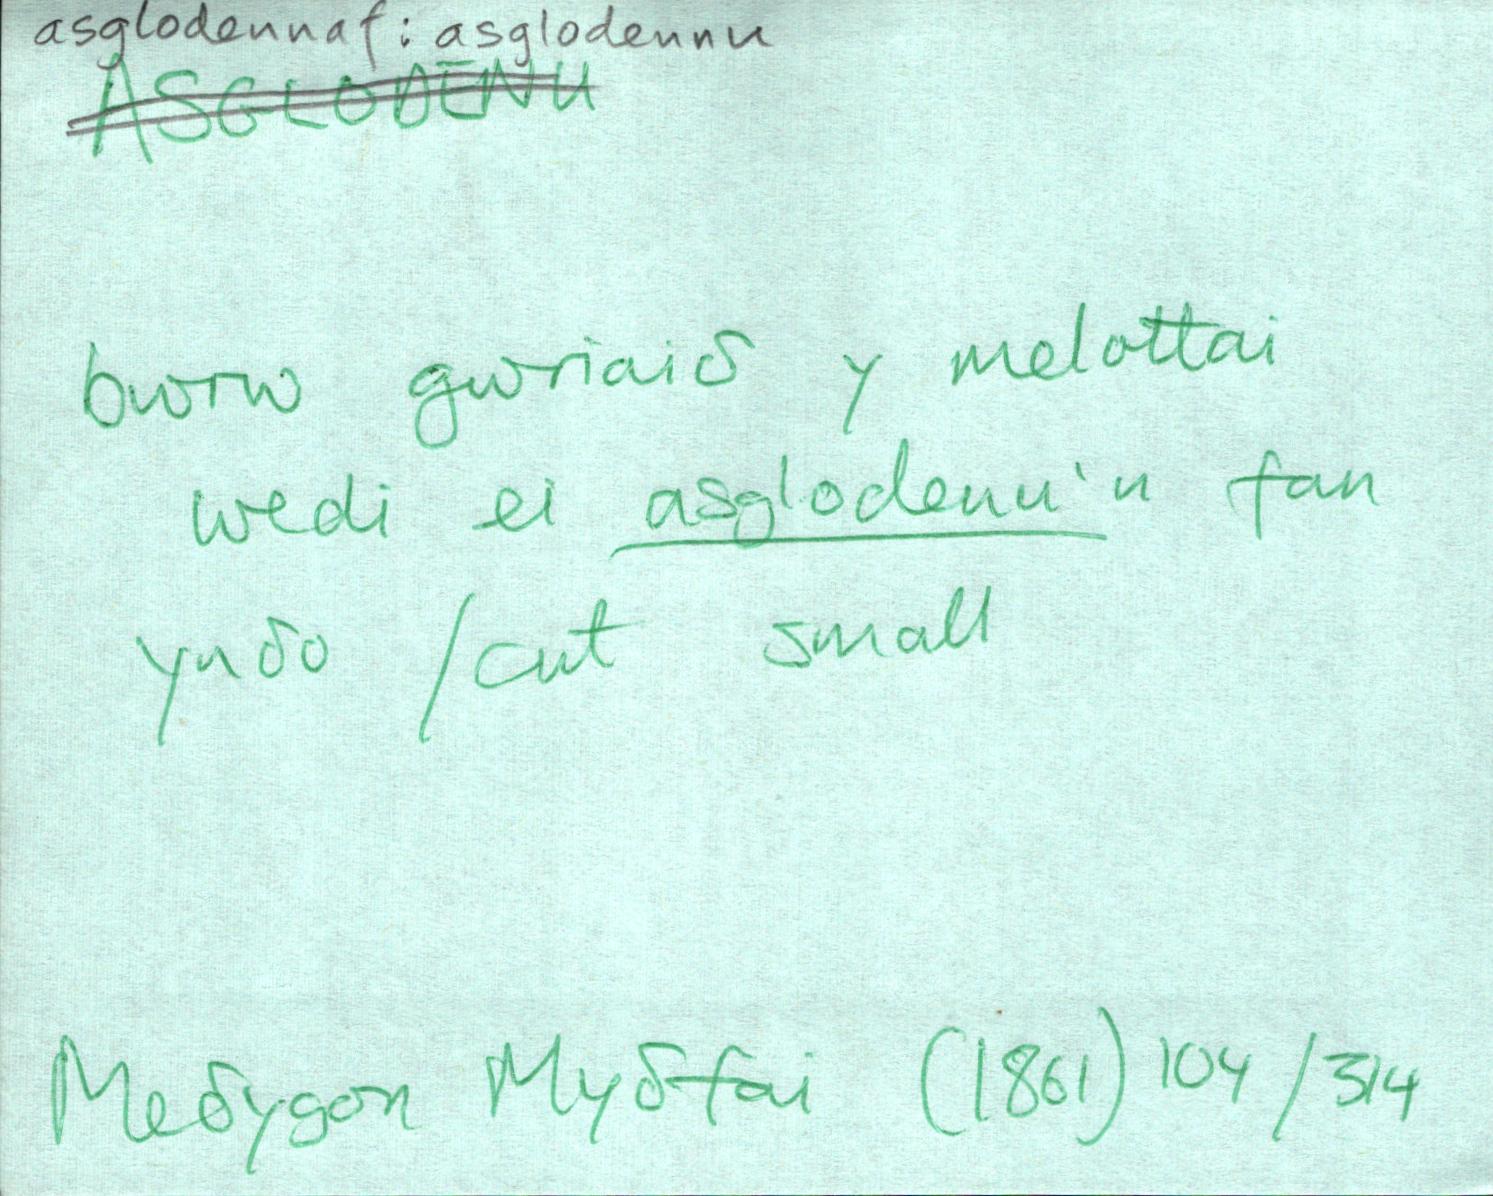 asglodennaf: asglodennu
ASGLODEN̄U
bwrw gwriaiδ y melottai
wedi ei asglodenu'n fan
ynδo / cut small
Meδygon Myδfai (1861) 104 / 314